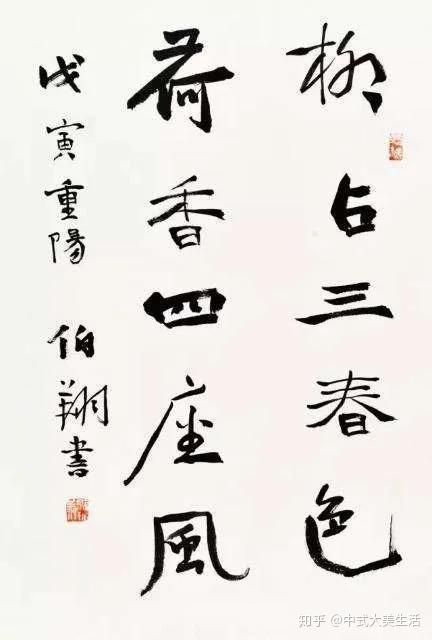 柳占三春色
荷香四座風
戊寅重陽 伯翔書
知乎 @中式大美生活